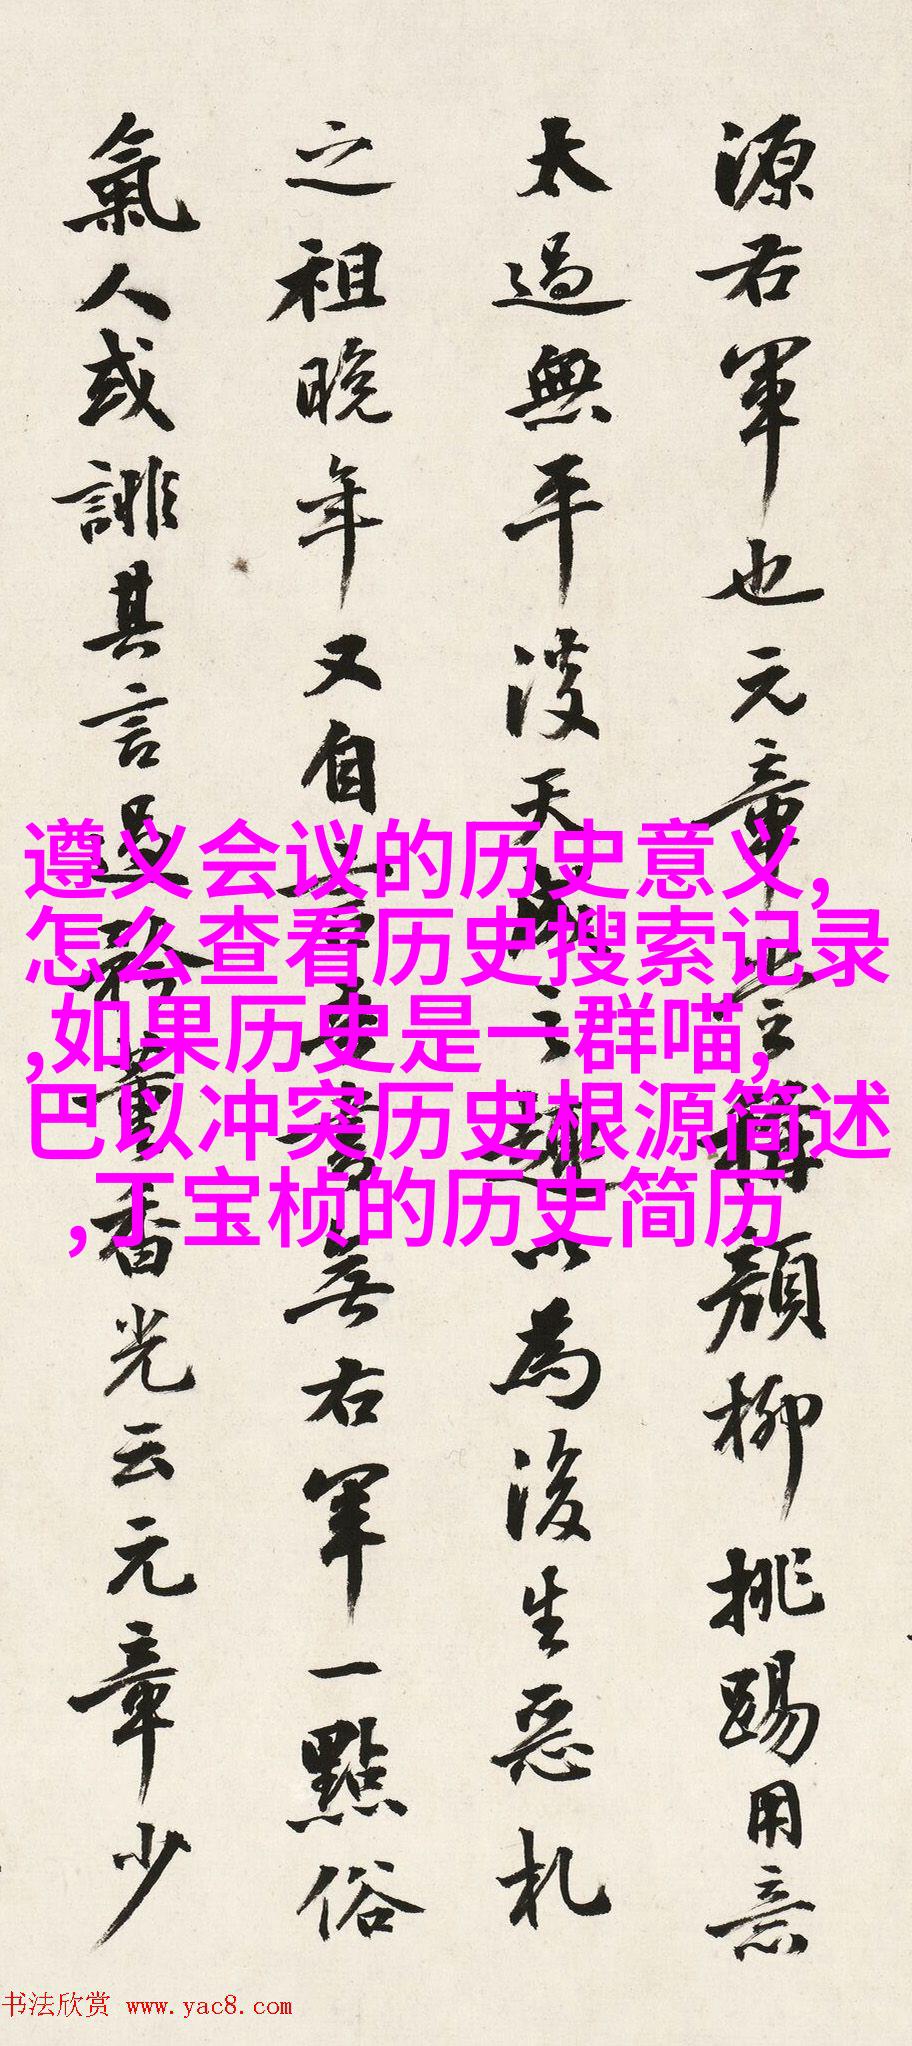 源右軍也元章嘗言顏柳挑踢用意
太過無平淡天成之趣以為後生惡札
之祖晚年又自言其書無右軍一點俗
氣人或誹其言過矜董香光云元章少
遵义会议的历史意义,
怎么查看历史搜索记录
,如果历史是一群喵,
巴以冲突历史根源简述
,丁宝桢的历史简历
书法欣赏 www.yac8.com